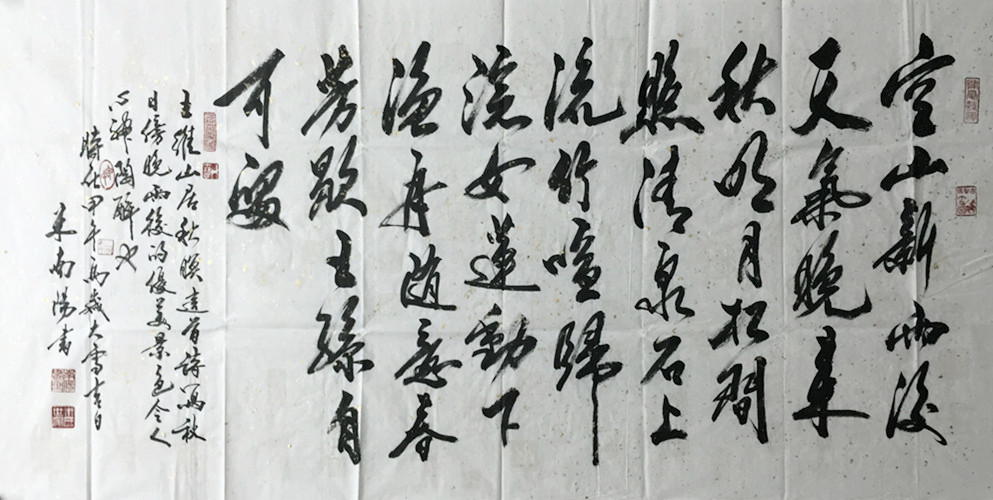 空山新雨後
天氣晚来
秋明月松間
照清泉石上
流竹喧歸
浣女蓮動下
漁舟随意春
芳歇王孫自
可留
王維山居秋暝這首詩寫秋
日傍晚雨後的優美景色令人
心神陶醉也
時在甲午馬歲大雪吉日
米南陽書